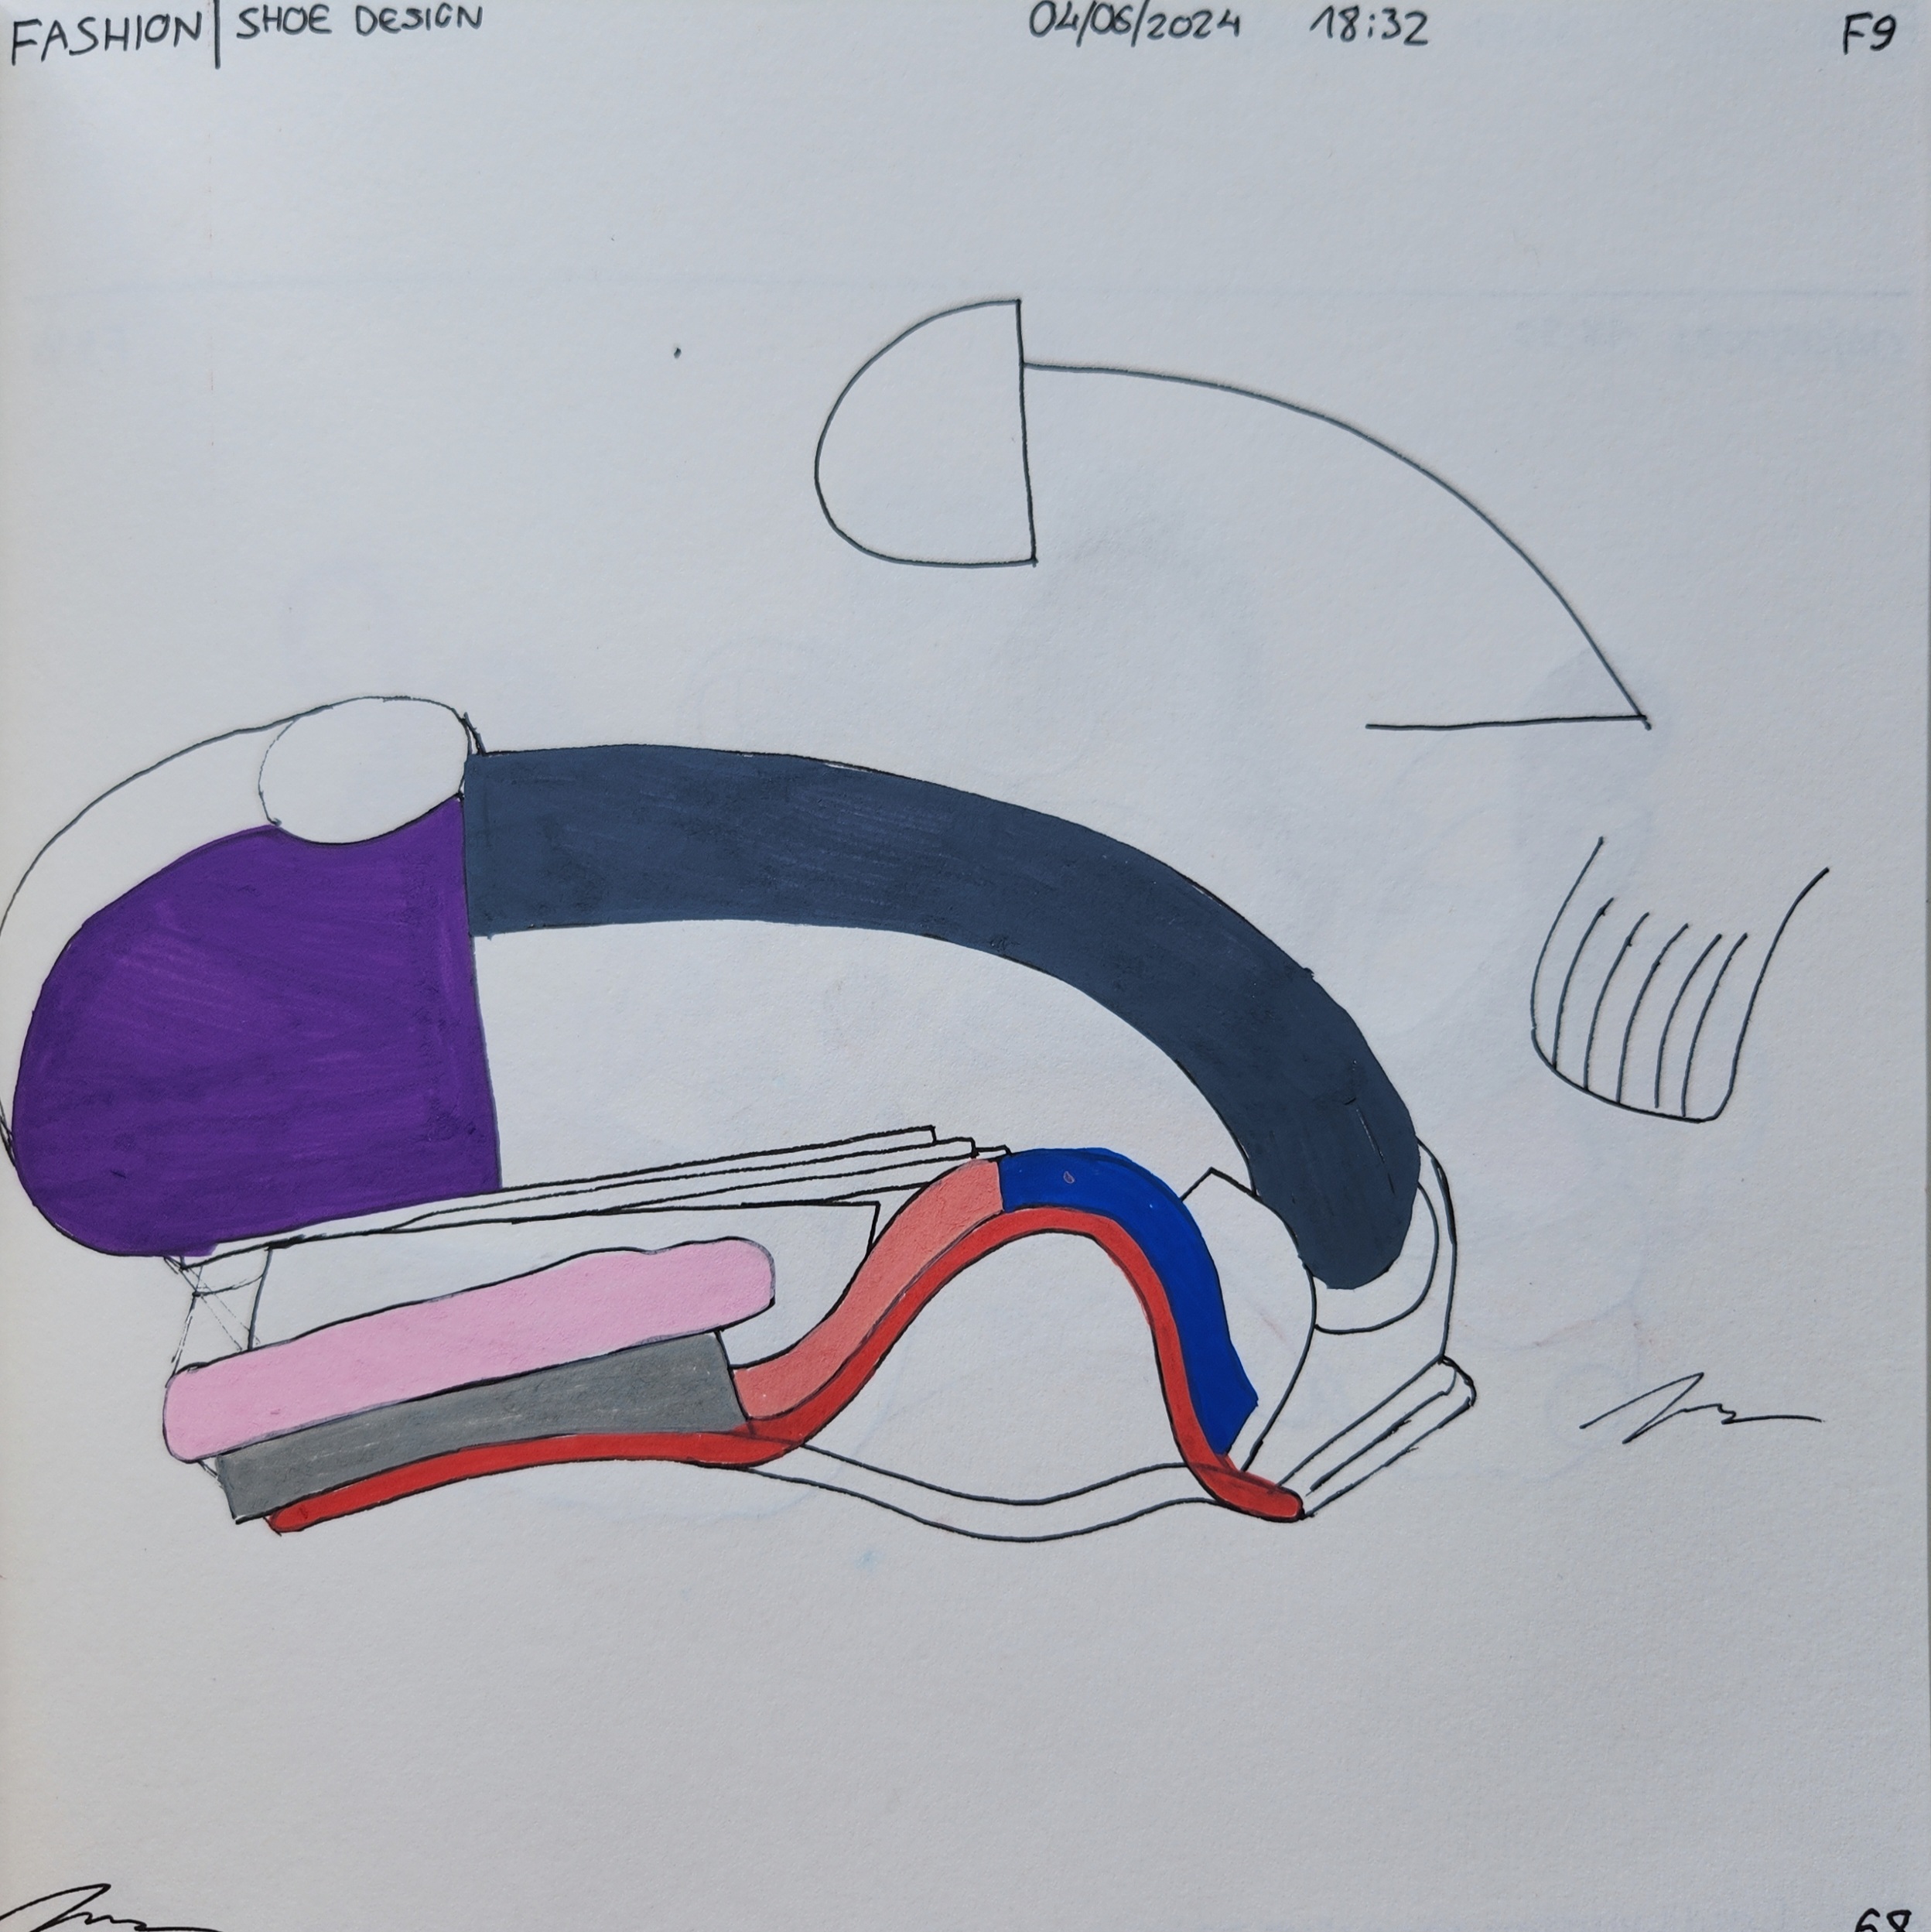 FASHION | SHOE DESIGN 04/06/2024 18:32 F9
68